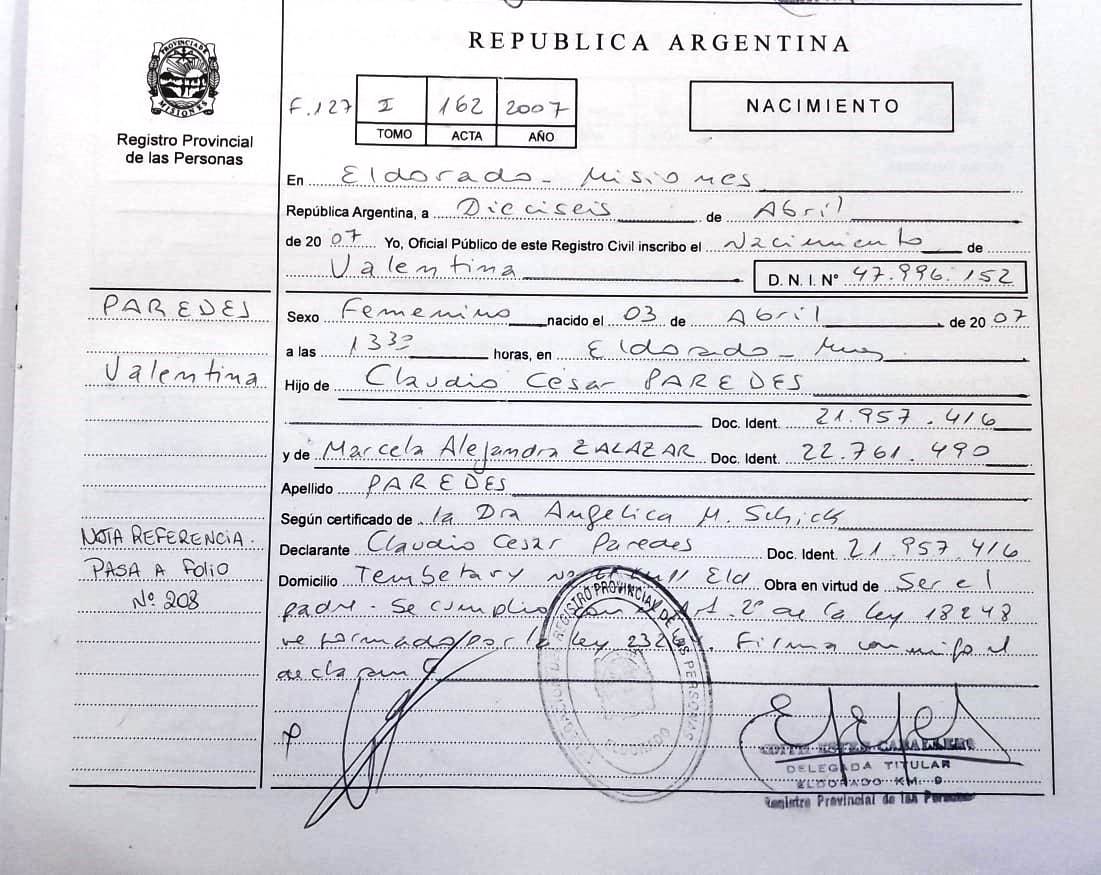 REPUBLICA ARGENTINA
PROVINCIA DE MISIONES
Registro Provincial
de las Personas
F.127 I 162 2007
TOMO ACTA AÑO
NACIMIENTO
En Eldorado - Misiones
República Argentina, a Dieciseis de Abril
de 2007 Yo, Oficial Público de este Registro Civil inscribo el Nacimiento de
Valentina D. N. I. Nº 47.996.152
PAREDES
Valentina
Sexo Femenino nacido el 03 de Abril de 2007
a las 13 30 horas, en Eldorado - Mnes
Hijo de Claudio César PAREDES
Doc. Ident. 21.957.416
y de Marcela Alejandra ZALAZAR Doc. Ident. 22.761.490
Apellido PAREDES
Según certificado de la Dra Angelica M. Schick
NOTA REFERENCIA.
PASA A Folio
Nº 208
Declarante Claudio Cesar Paredes Doc. Ident. 21.957.416
Domicilio Tembetary Eld. Obra en virtud de Ser el
padre. Se cumplio con el Art. 2º de la ley 18248
reformado por la ley Firma conmigo el
declarante
REGISTRO PROVINCIAL DE LAS PERSONAS
ELDORADO
DELEGADA TITULAR
ELDORADO KM. 9
Registro Provincial de las Personas